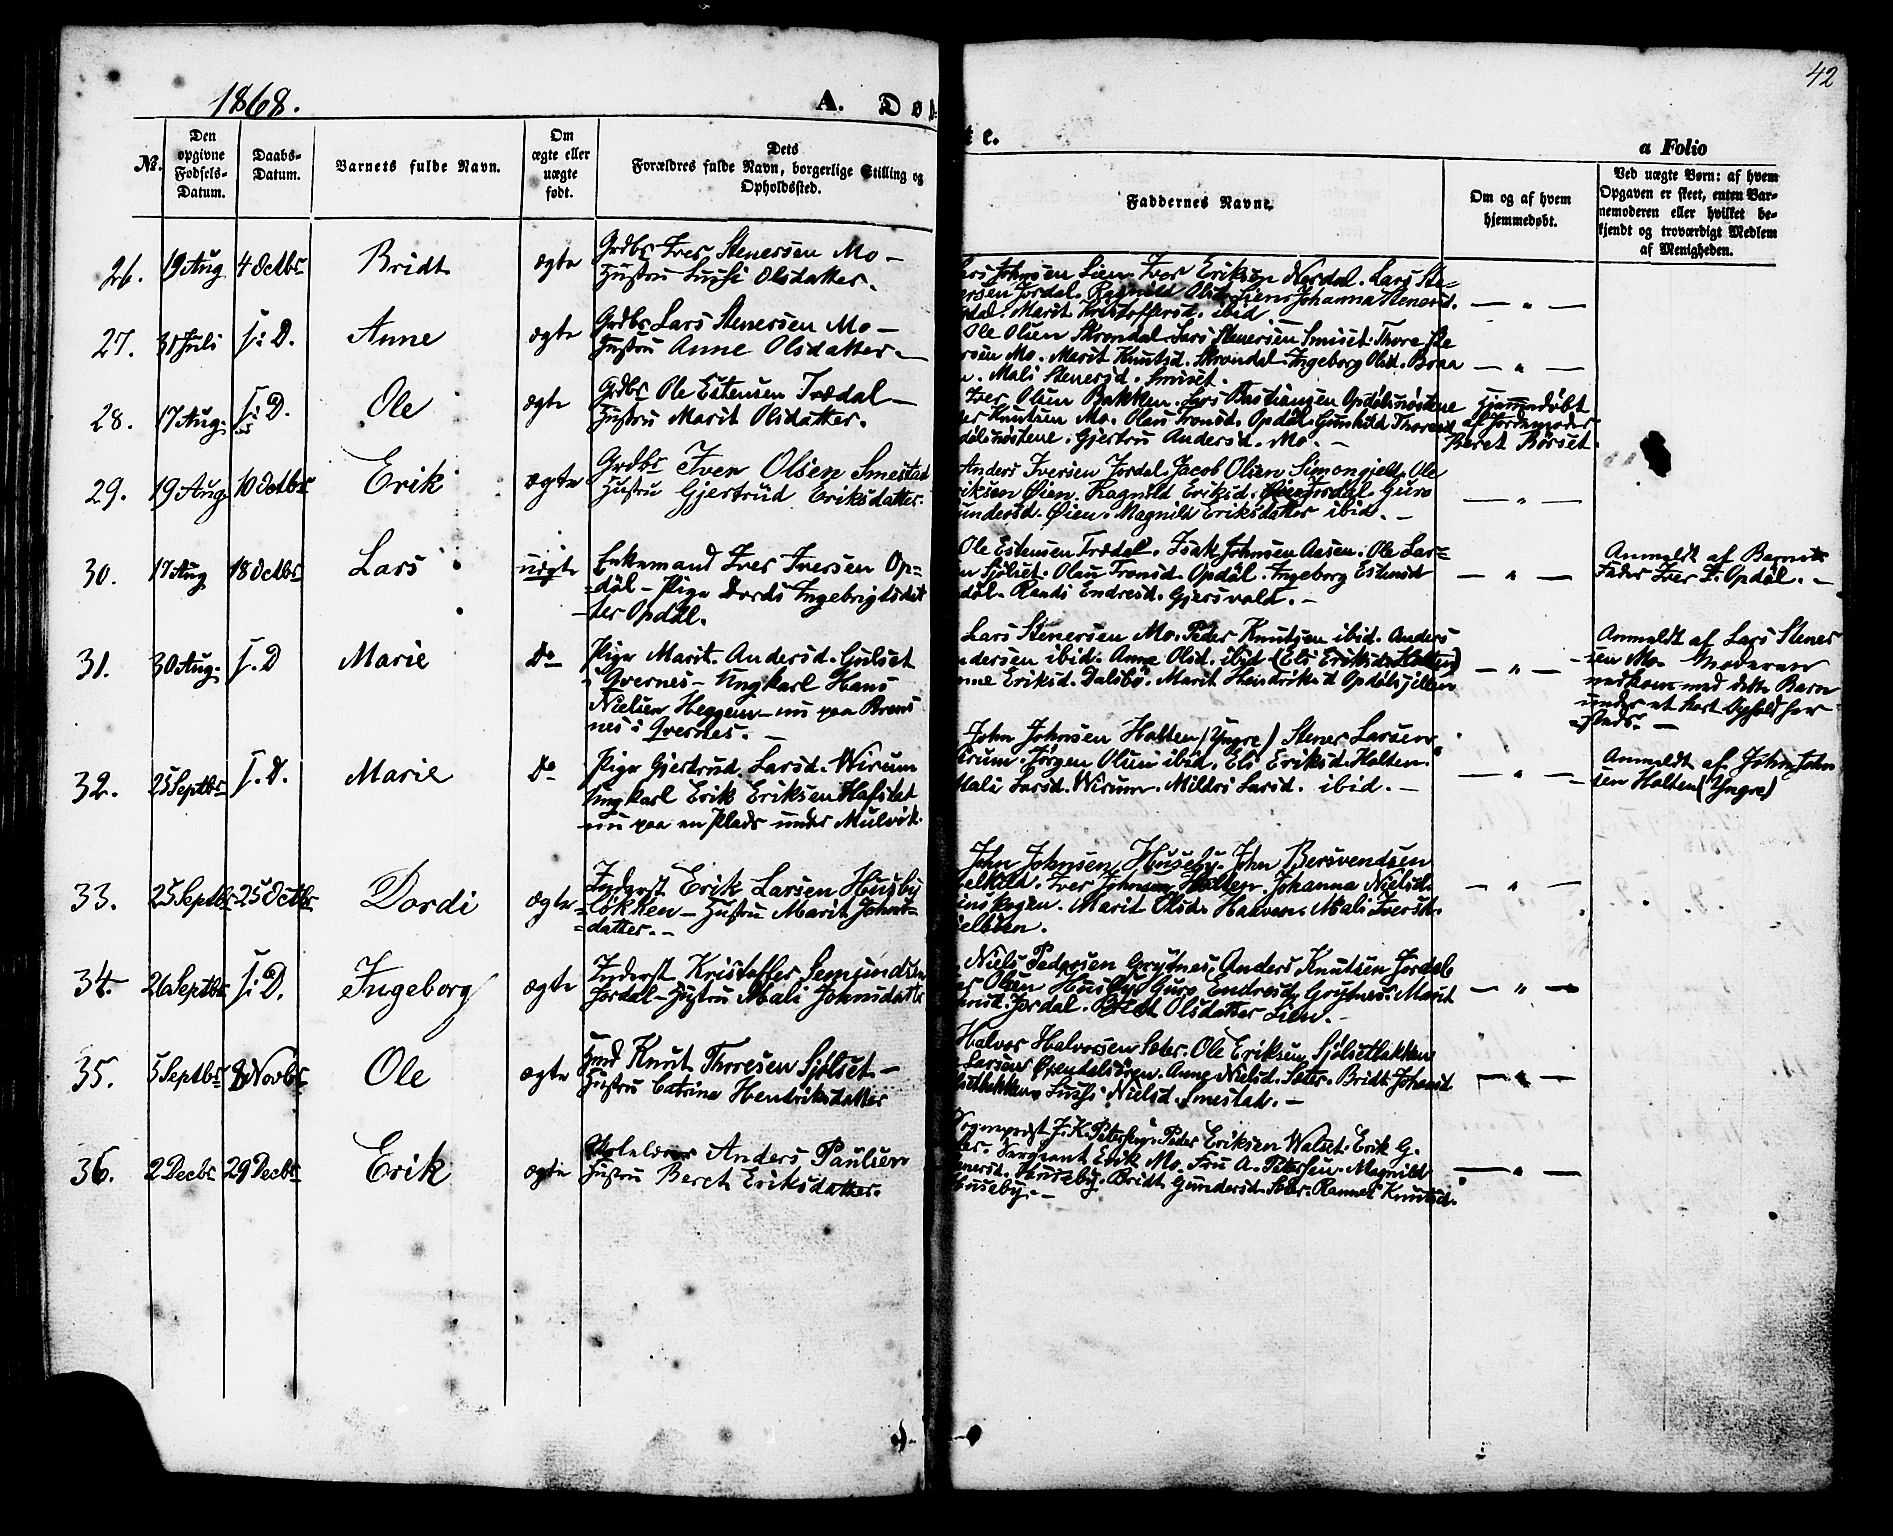 1868.
A. Døb
te.
42
a Folio
№.
Den
opgivne
Fødsels-
Datum.
Daabs-
Datum.
Barnets fulde Navn.
Om
ægte eller
uægte
født.
Dets
Forældres fulde Navn, borgerlige Stilling og
Opholdssted.
Faddernes Navne.
Om og af hvem
hjemmedøbt.
Ved uægte Børn: af hvem
Opgaven er skeet, enten Bar-
nemoderen eller hvilket be-
kjendt og troværdigt Medlem
af Menigheden.
26. 19 Aug 4 Octbr Bridt ægte Grdbr Iver Stenersen Mo –
Hustru Lussi Olsdatter.
Lars Johnsen Lien. Iver Eriksen Nordal. Lars Ste=
ersen Jordal. Ragnild Olsd. Lien. Johanna Stenersd.
dal. Marit Kristoffersd. ibid — „ —
27. 31 Juli s: D. Anne ægte Grdbr Lars Stenersen Mo –
Hustru Anne Olsdatter. –
Ole Olsen Skrondal. Lars Stenersen Smiset. Thore Ste
ersen Mo. Marit Knutsd. Skrondal. Ingeborg Olsd. Braa
n. Mali Stenersd. Smiset. — „ —
28. 17 Aug. s: D. Ole ægte Grdbr Ole Estensen Trædal –
Hustru Marit Olsdatter.
Iver Olsen Bakken. Lars Bastiansen Opdølsnøstene
der Knutsen Mo. Olau Tronsd. Opdøl. Gunhild Thoresd
dølsnøstene. Gjertru Andersd. Mo. –
Hjemmedøbt
af Jordmoder
Beret Børset.
29. 19 Aug 10 Octbr Erik ægte Grdbr Iver Olsen Smestad
Hustru Gjertrud Eriksdatter.
Anders Iversen Jordal. Jacob Olsen Simongjelt. Ole
riksen Øien. Ragnild Eriksd. Jordal. Guro
undersd. Øien. Magnild Eriksdatter ibid. – — „ —
30. 17 Aug 18 Octbr Lars uægte Enkemand Iver Iversen Op=
=døl – Pige Dordi Ingebrigtsdat
ter Opdøl.
Ole Estensen Trædal. Isak Johnsen Aasen. Ole Lar=
n Sjølset. Olau Tronsd. Opdøl. Ingeborg Estensd
dal. Randi Endresd. Gjersvold. – — „ —
Anmeldt af Barnets
Fader Iver I. Opdøl. –
31. 30 Aug. s. D Marie Do Pige Marit Andersd. Gulset
i Qvernes – Ungkarl Hans
Nielsen Heggem – nu paa Brems
nes i Qvernes. –
Lars Stenersen Mo. Peder Knutsen ibid. Anders
ndersen ibid. Anne Olsd. ibid (Eli Eriksd. Holten)
nne Eriksd. Dalsbø. Marit Hendriksd Opdølsjellen — „ —
Anmeldt af Lars Stener
sen Mo. Moderen
nedkom med dette Barn
under et kort Ophold her
steds. –
32. 25 Septbr s. D. Marie Do Pige Gjertrud Larsd. Wirum
Ungkarl Erik Eriksen Hafslet
nu paa en Plads under Mulvik.
John Johnsen Holten (Yngre) Stener Larsen
Wirum. Jørgen Olsen ibid. Eli Eriksd. Holten.
Mali Larsd. Wirum. Mildri Larsd. ibid. – — „ —
Anmeldt af John John
sen Holten (Yngre)
33. 25 Septbr 25 Octbr Dordi ægte Inderst Erik Larsen Husby
løkken – Hustru Marit Johns=
=datter. –
John Johnsen Huseby. John Bersvendsen
elkild. Iver Johnsen Holten. Johanna Nielsd.
inskogen. Marit Olsd. Halven. Mali Iversd.
— „ —
34. 26 Septbr s. D. Ingeborg ægte Inderst Kristoffer Semundsen
Jordal – Hustru Mali Johnsdatter
Niels Pedersen Grytnes. Anders Knutsen Jordal
Olsen Husby. Guro Endresd. Grytnes. Marit
Knut. Jordal. Bredt Olsdatter Lien. – — „ —
35. 5 Septbr 8 Novbr Ole ægte Hmd Knut Thoresen Sjølset –
Hustru Catrine Hendriksdatter
Halvor Halvorsen Sæter. Ole Eriksen Sjølsetløkken
Larsen Ørendalsøren. Anne Nielsd. Sæter. Bridt Johansd
Lussi Nielsd. Smestad. – — „ —
36. 2 Decbr 29 Decbr Erik ægte Skolelærer Anders Paulsen
Hustru Beret Eriksdatter.
Sognprest J. K. Petersen. Peder Eriksen Walset. Erik G.
ter. Sergeant Erik Mo. Fru A. Petersen. Magnild
nersd. Huseby. Bridt Gundersd. Sæter. Rannei Knutsd.
Huseby. – — „ —